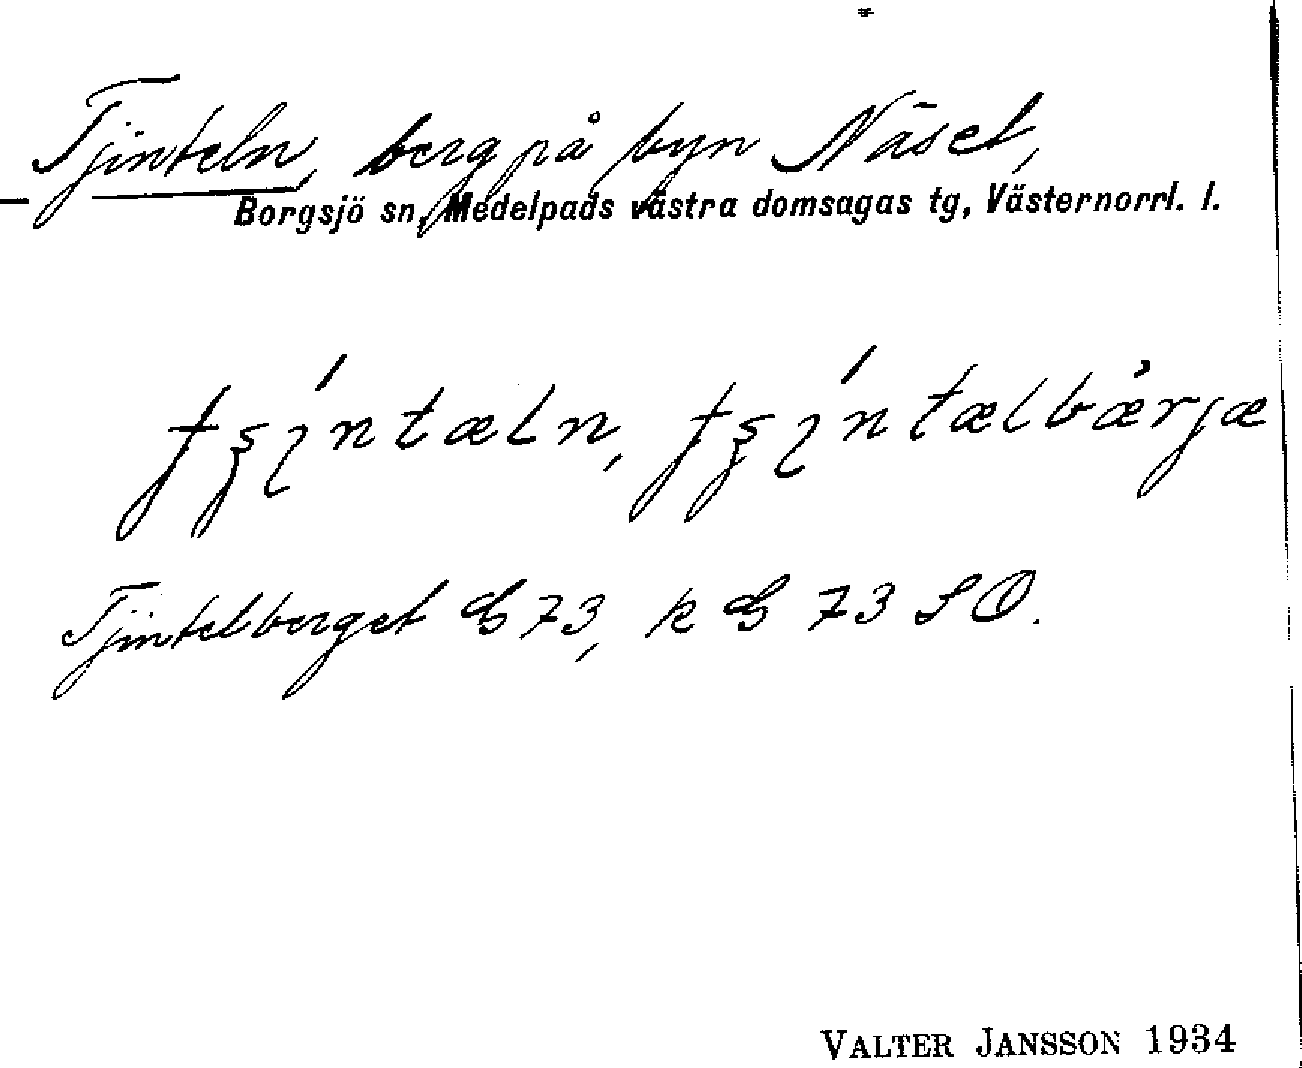 Tjinteln, berg på byn Näset,
Borgsjö sn, Medelpads västra domsagas tg, Västernorrl. l.
Tjintelberget G 73, k G 73 SO.
VALTER JANSSON 1934